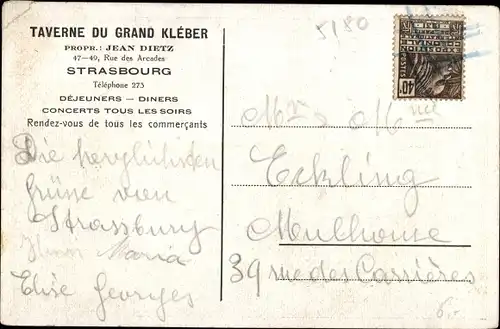 TAVERNE DU GRAND KLÉBER
PROPR.: JEAN DIETZ
47–49, Rue des Arcades
STRASBOURG
Téléphone 273
DÉJEUNERS — DINERS
CONCERTS TOUS LES SOIRS
Rendez-vous de tous les commerçants
Die herzlichsten
Grüße von
Strassburg
Maria
Elise Georges
5180
POSTES
40c
Mr &
Eckling
Mulhouse
39 rue des Carrières
6.-